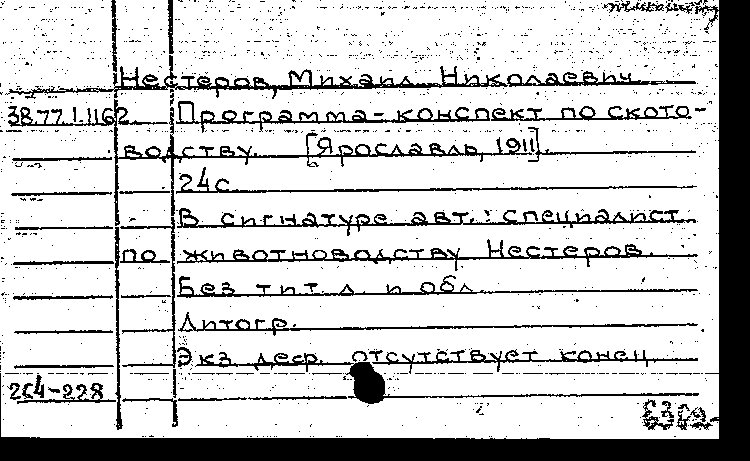 Нестеров, Михаил Николаевич
38.77.1.1162 Программа-конспект по ското-
водству. [Ярославль, 1911].
24с
В сигнатуре авт.: специалист
по животноводству Нестеров.
Без тит. л. и обл.
Литогр.
Экз. деф. отсутствует конец
264-228